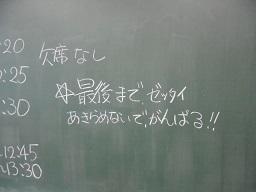 :20 欠席なし
:25
☆最後まで、ゼッタイ
:30 あきらめないで、がんばる!!
12:45
13:30